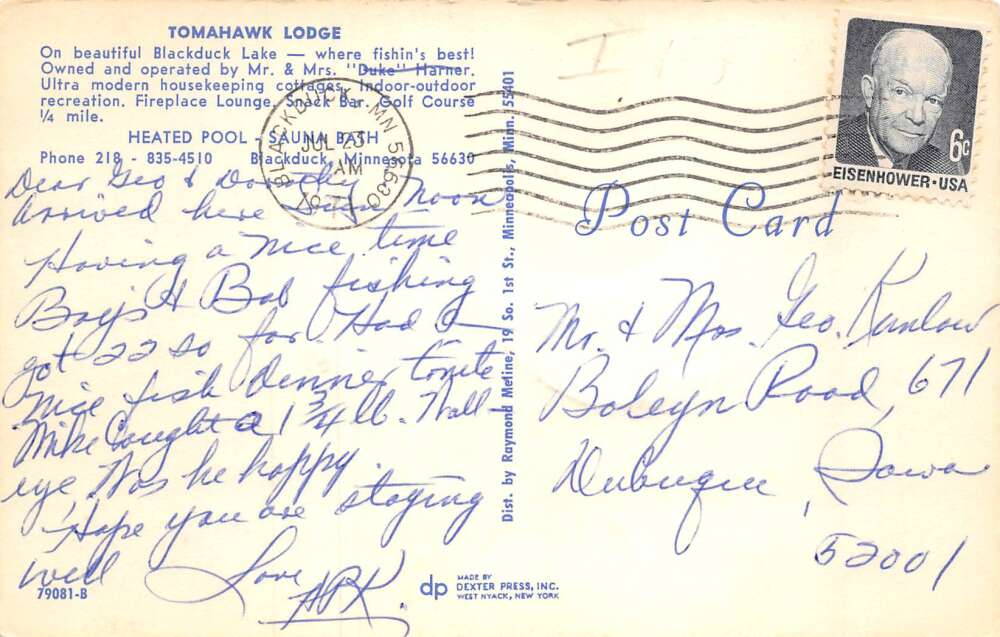 TOMAHAWK LODGE
On beautiful Blackduck Lake — where fishin's best!
Owned and operated by Mr. & Mrs. "Duke" Harner.
Ultra modern housekeeping cottages. Indoor-outdoor
recreation. Fireplace Lounge, Snack Bar. Golf Course
¼ mile.
HEATED POOL - SAUNA BATH
Phone 218 - 835-4510 Blackduck, Minnesota 56630
BLACKDUCK, MN 56630
JUL 23
AM
6c
EISENHOWER·USA
Dear Geo & Dorothy
Arrived here Sun. Noon
Having a nice time
Boys & Bob fishing
got 22 so far. Had a
nice fish dinner tonite
Mike Caught a 1 ¾ lb. Wall-
eye, Was he happy.
Hope you are staying
well
Love
79081-B
Dist. by Raymond Meline, 19 So. 1st St., Minneapolis, Minn. 55401
Post Card
Mr. & Mrs. Geo.
Boleyn Road, 671
Dubuque, Iowa
52001
dp
MADE BY
DEXTER PRESS, INC.
WEST NYACK, NEW YORK